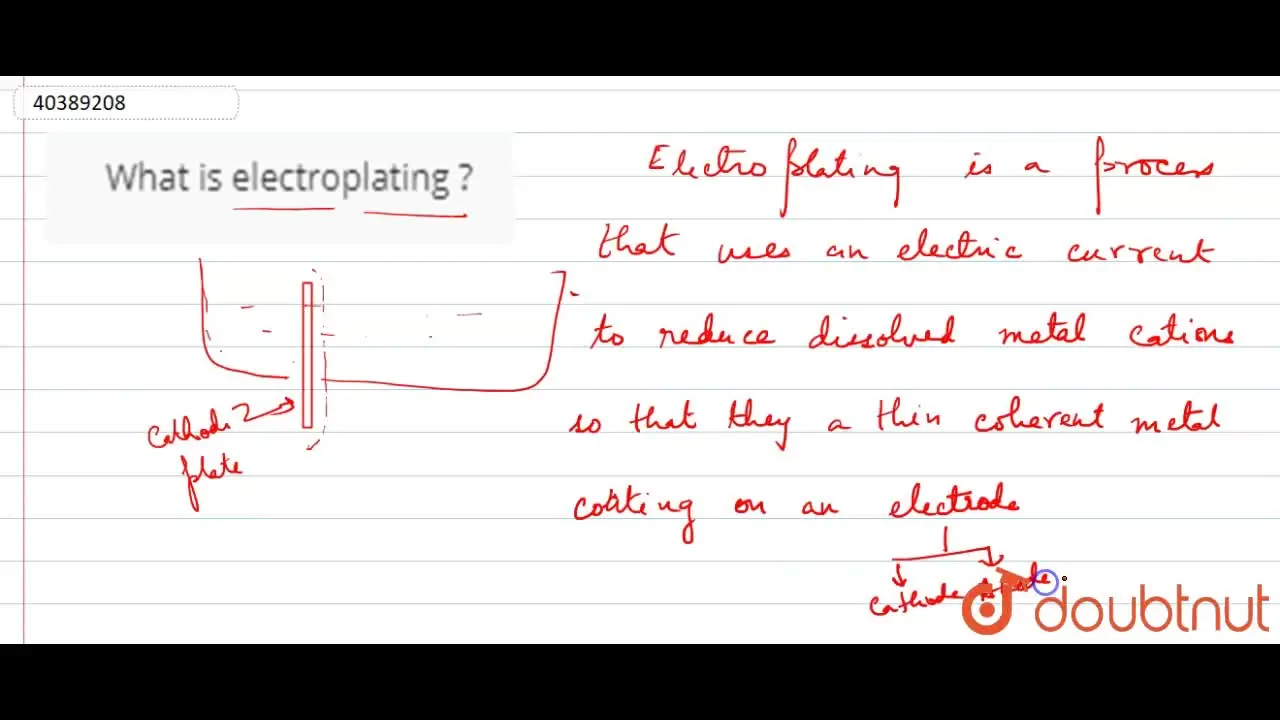 40389208
What is electroplating ?
Electroplating is a process
that uses an electric current
to reduce dissolved metal cations
so that they a thin coherent metal
coating on an electrode
cathode
plate
cathode Anode
doubtnut